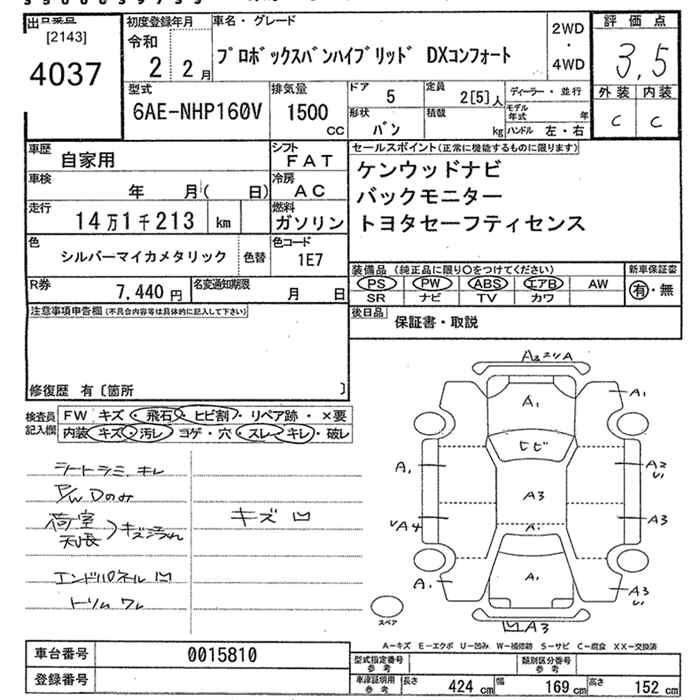 [2143]
4037
初度登録年月
令和
2 2月
車名・グレード
プロボックスバンハイブリッド DXコンフォート
2WD
・
4WD
評価点
3,5
外装 内装
C C
型式
6AE-NHP160V
排気量
1500
CC
ドア
5
定員
2[5]人
ディーラー・並行
形状
バン
積載
kg
モデル年式 年
ハンドル 左・右
車歴
自家用
シフト
FAT
車検
年 月( 日)
冷房
AC
走行
14万1千213 km
燃料
ガソリン
色
シルバーマイカメタリック
色替
色コード
1E7
R券
7,440 円
名変通知期限
月 日
セールスポイント(正常に機能するものに限ります)
ケンウッドナビ
バックモニター
トヨタセーフティセンス
装備品 (純正品に限り○をつけてください)
PS PW ABS エアB AW
SR ナビ TV カワ
新車保証書
有・無
後日品
保証書・取説
注意事項申告欄(不具合内容等は具体的に記入して下さい)
修復歴 有〔箇所 〕
検査員記入欄
FW キズ・飛石・ヒビ割・リペア跡・×要
内装 キズ・汚レ ヨゲ・穴・スレ・キレ・破レ
シートシミ、キレ
P/W Dのみ
荷室
天張
キズ汚れ
エンドパネル凹
トリム ワレ
キズ 凹
A1
A1
ヒビ
A1
A2
U1
A3
A3
A1
A1
A1
A3
U1
凹A3
スペア
A-キズ E-エクボ U-凹み W-補修跡 S-サビ C-腐食 XX-交換済
車台番号
0015810
登録番号
型式指定番号
参考
類別区分番号
参考
車庫証明用
参考
長さ 424 cm
幅 169 cm
高さ 152 cm